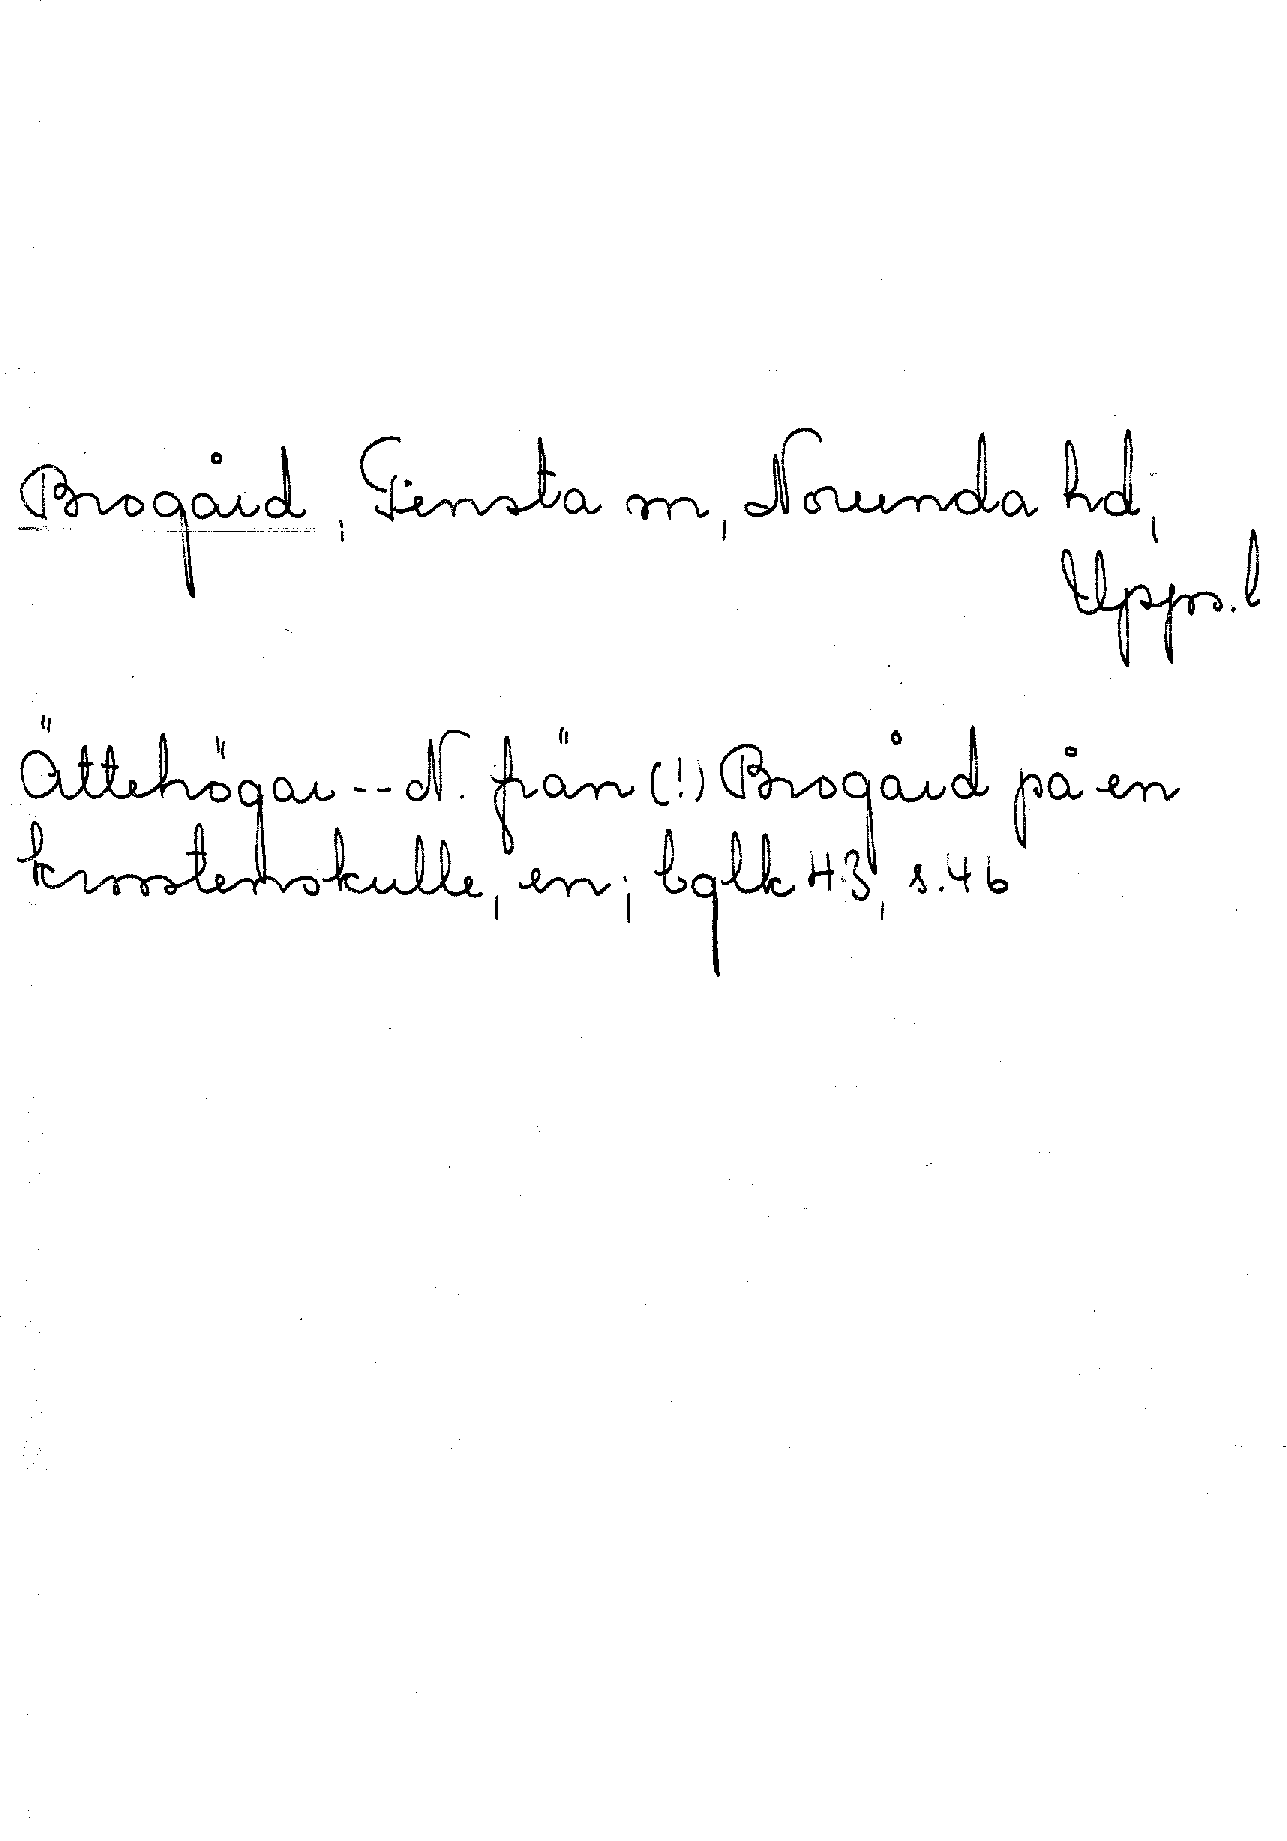 Brogård, Tensta sn, Norunda hd,
Upps. l
Ättehögar -- N. frän (!) Brogård på en
krosstenskulle, en; bglk 43, s. 46